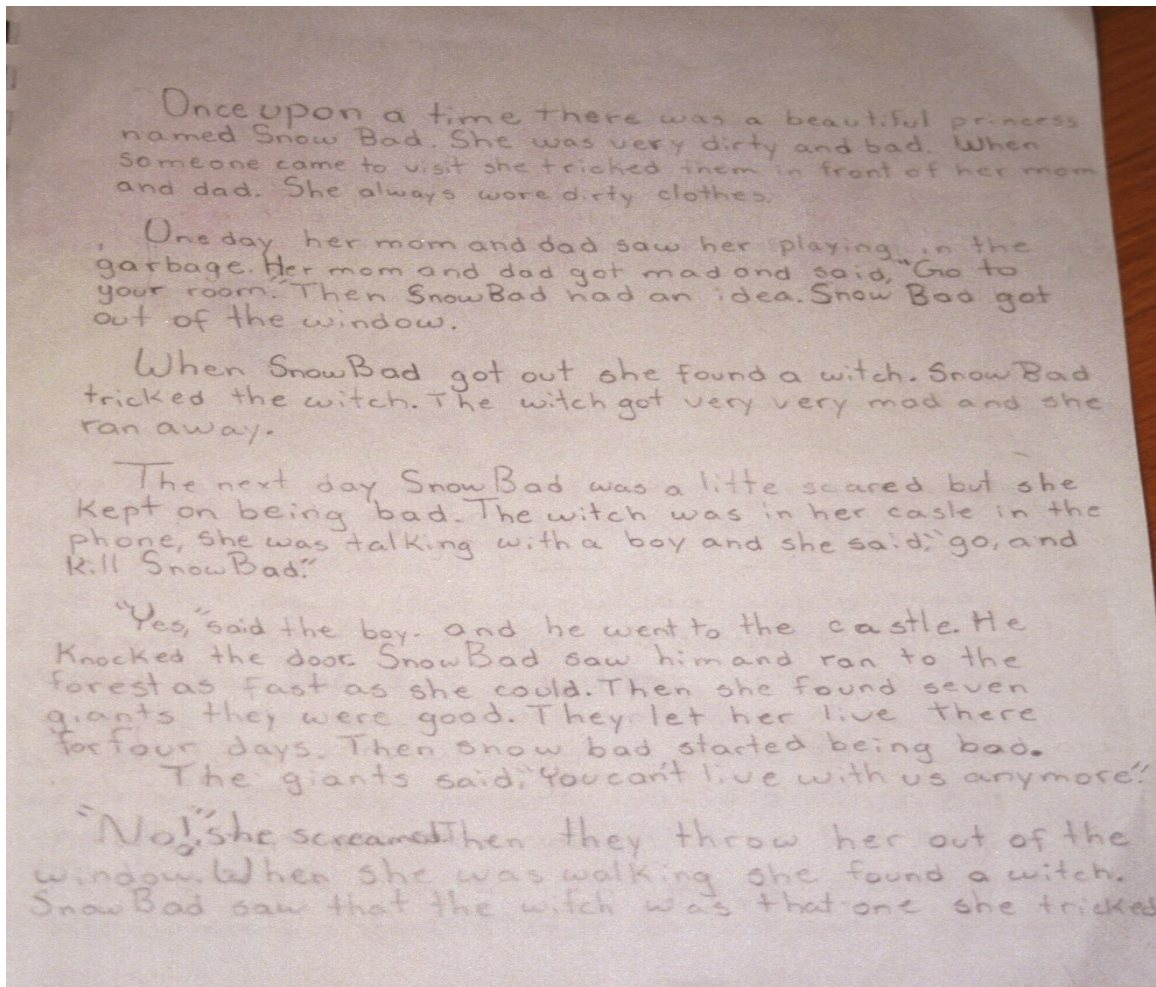 Once upon a time there was a beautiful princess
named Snow Bad. She was very dirty and bad. When
someone came to visit she tricked them in front of her mom
and dad. She always wore dirty clothes.
One day, her mom and dad saw her playing in the
garbage. Her mom and dad got mad and said, "Go to
your room." Then Snow Bad had an idea. Snow Bad got
out of the window.
When Snow Bad got out she found a witch. Snow Bad
tricked the witch. The witch got very very mad and she
ran away.
The next day Snow Bad was a litte scared but she
kept on being bad. The witch was in her casle in the
phone, she was talking with a boy and she said, "go, and
kill Snow Bad."
"Yes," said the boy. and he went to the castle. He
Knocked the door. Snow Bad saw him and ran to the
forest as fast as she could. Then she found seven
giants they were good. They let her live there
for four days. Then snow bad started being bad.
The giants said, "You can't live with us anymore."
"No!," she screamed. Then they throw her out of the
window. When she was walking she found a witch.
Snow Bad saw that the witch was that one she tricked